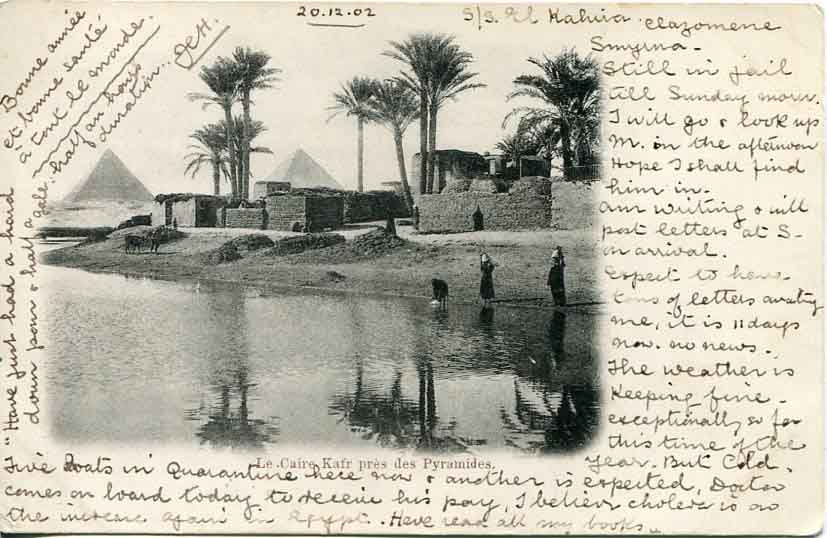 20.12.02
S/S. El Kahira. Clazomene
Smyrna -
Still in jail
till Sunday morn.
I will go & look up
M. on the afternoon
Hope I shall find
him in -
am writing & will
post letters at S -
on arrival.
Expect to have
tons of letters awaiting
me, it is 11 days
now. no news.
The weather is
Keeping fine -
exceptionally so for
this time of the
year. But Cold.
Five Boats in Quarantine here now & another is expected, Doctor
comes on board today to receive his pay, I believe cholera is on
the increase again in Egypt. Have read all my books "
"Have just had a hard
down pour & half a gale.
half an hours
duration."
Bonne année
et bonne santé
à tout le monde.
Le Caire Kafr près des Pyramides.